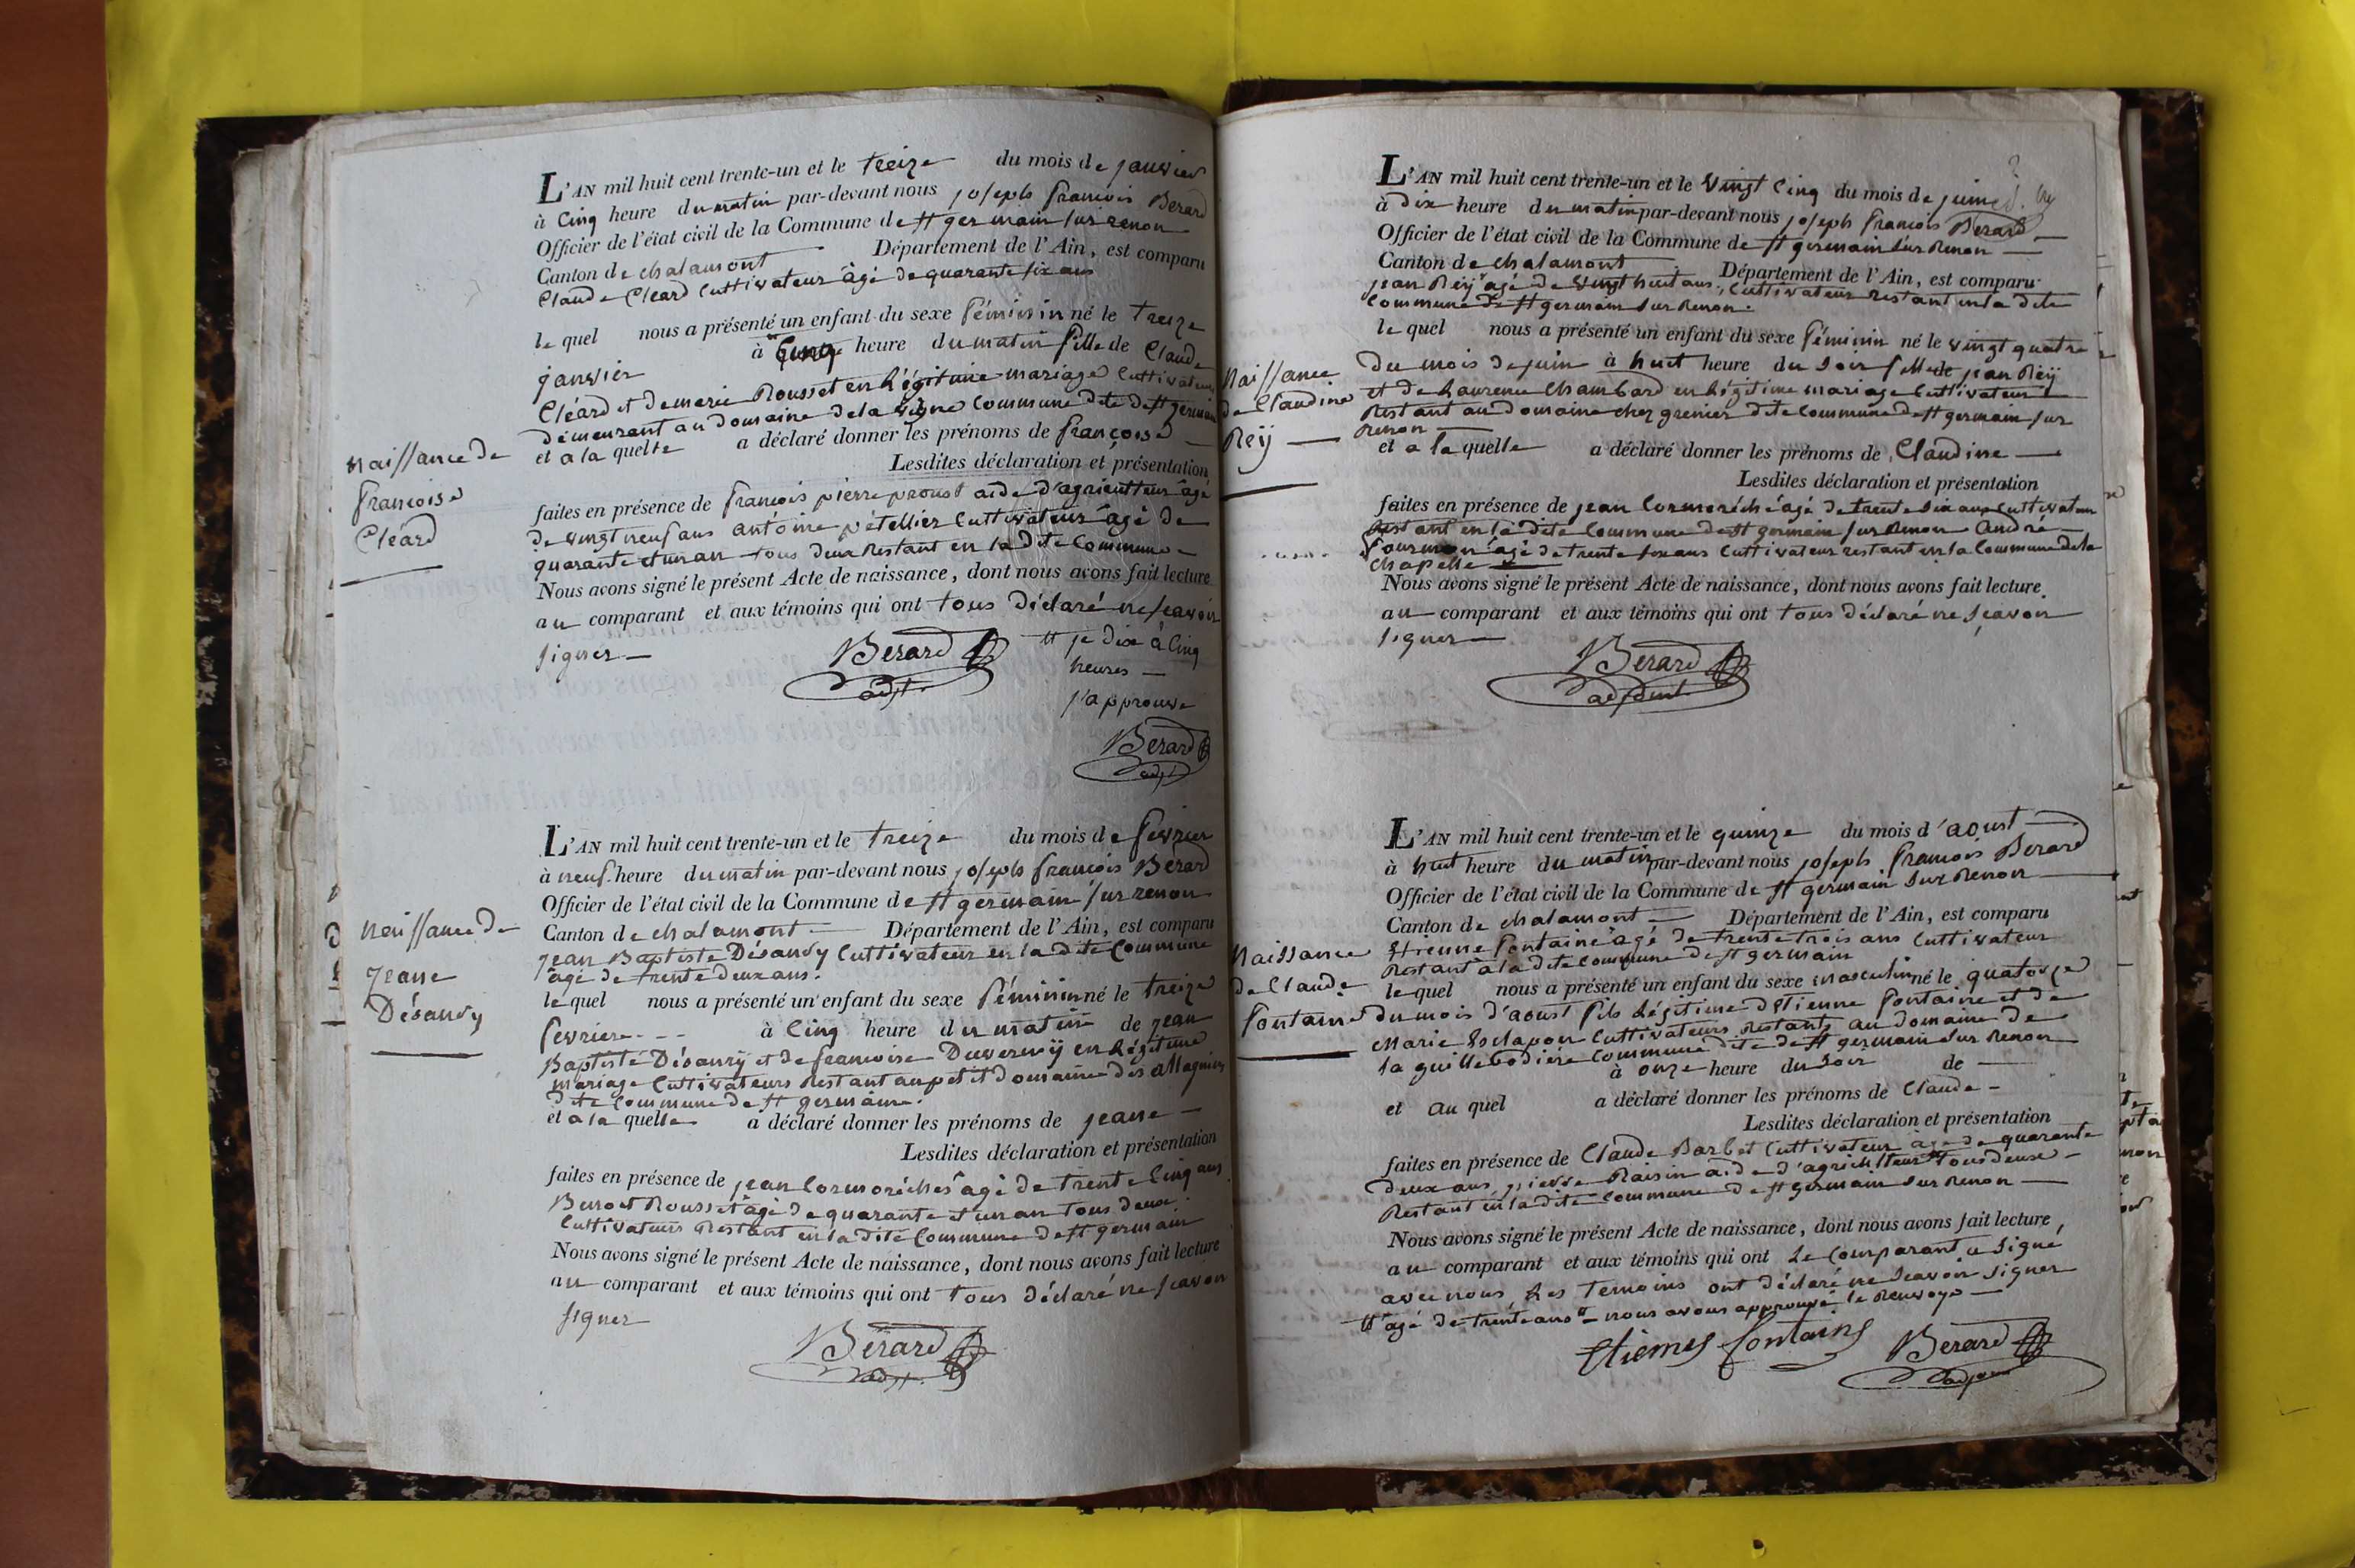 L'AN mil huit cent trente-un et le treize du mois de janvier
à Cinq heure du matin par-devant nous joseph francois Berard
Officier de l'état civil de la Commune de st germain sur renon
Canton de chalamont Département de l'Ain, est comparu
Claude Cléard Cultivateur âgé de quarante six ans
le quel nous a présenté un enfant du sexe féminin né le treize
janvier à Cinq heure du matin fille de Claude
Cléard et de marie Rousset en Légitime mariage Cultivateurs
demeurant au domaine de la vigne Commune dite de st germain
et a la quelle a déclaré donner les prénoms de françoise
Lesdites déclaration et présentation
faites en présence de françois pierre proust aide d'agriculteur âgé
de vingt neuf ans antoine pétellier Cultivateur âgé de
quarante et un an tous deux Restant en la dite Commune
Nous avons signé le présent Acte de naissance, dont nous avons fait lecture
au comparant et aux témoins qui ont tous déclaré ne scavoir
signer
Berard
adjt
je dix à Cinq
heures
j'approuve
Berard
adjt
Naissance de
françoise
Cléard
L'AN mil huit cent trente-un et le treize du mois de fevrier
à neuf heure du matin par-devant nous joseph francois Berard
Officier de l'état civil de la Commune de st germain sur renon
Canton de chalamont Département de l'Ain, est comparu
jean Baptiste Désandy Cultivateur en la dite Commune
âgé de trente deux ans.
le quel nous a présenté un enfant du sexe féminin né le treize
fevrier à Cinq heure du matin de jean
Baptiste Désandy et de francoise en Légitime
mariage Cultivateurs Restant au petit domaine des
dite Commune de st germain.
et a la quelle a déclaré donner les prénoms de jeane
Lesdites déclaration et présentation
faites en présence de jean Cormorèche âgé de trente Cinq ans
Benoit Rousset âgé de quarante et un an tous deux
Cultivateurs Restant en la dite Commune de st germain
Nous avons signé le présent Acte de naissance, dont nous avons fait lecture
au comparant et aux témoins qui ont tous déclaré ne scavoir
signer
Berard
adjt
Naissance de
Jeane
Désandy
L'AN mil huit cent trente-un et le vingt Cinq du mois de juin
à dix heure du matin par-devant nous joseph francois Berard
Officier de l'état civil de la Commune de st germain sur Renon
Canton de chalamont Département de l'Ain, est comparu
jean Reÿ âgé de vingt huit ans, Cultivateur restant en la dite
Commune de st germain sur Renon.
le quel nous a présenté un enfant du sexe féminin né le vingt quatre
du mois de juin à huit heure du soir fille de jean Reÿ
et de Laurence Chambard en Légitime mariage Cultivateurs
Restant au domaine chez grenier dite Commune de st germain sur
Renon
et a la quelle a déclaré donner les prénoms de Claudine
Lesdites déclaration et présentation
faites en présence de jean Cormorèche âgé de trente six ans Cultivateur
Restant en la dite Commune de st germain sur Renon André
âgé de trente six ans Cultivateur restant en la Commune de la
chapelle
Nous avons signé le présent Acte de naissance, dont nous avons fait lecture
au comparant et aux témoins qui ont tous déclaré ne scavoir
signer
Berard
adjoint
Naissance
de Claudine
Reÿ
L'AN mil huit cent trente-un et le quinze du mois d'aoust
à huit heure du matin par-devant nous joseph francois Berard
Officier de l'état civil de la Commune de st germain sur Renon
Canton de chalamont Département de l'Ain, est comparu
Etienne fontaine âgé de trente trois ans Cultivateur
Restant à la dite Commune de st germain
le quel nous a présenté un enfant du sexe masculin né le quatorze
du mois d'aoust fils Légitime d'Etienne fontaine et de
Marie Esclapon Cultivateurs Restants au domaine de
la guillebodière Commune dite de st germain sur Renon
à onze heure du soir de
et au quel a déclaré donner les prénoms de Claude
Lesdites déclaration et présentation
faites en présence de Claude Barbet Cultivateur âgé de quarante
deux ans, pierre Raisin aide d'agriculteur tous deux
Restant en la dite Commune de st germain sur Renon
Nous avons signé le présent Acte de naissance, dont nous avons fait lecture,
au comparant et aux témoins qui ont Le Comparant a signé
avec nous Les temoins ont déclaré ne scavoir signer
âgé de trente ans nous avons approuvé le Renvoye
Etienne fontaine
Berard
adjoint
Naissance
de Claude
fontaine